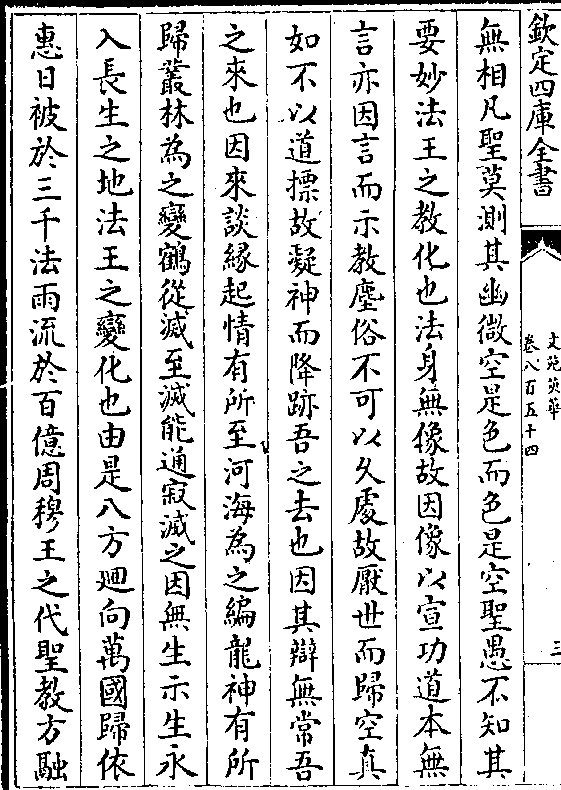 欽定四庫全書
文苑英華
卷八百五十四
三
無相凡聖莫測其幽微空是色而色是空聖愚不知其
要妙法王之教化也法身無像故因像以宣功道本無
言亦因言而示教塵俗不可以久處故厭世而歸空真
如不以道摽故凝神而降跡吾之去也因其辯無常吾
之來也因來談緣起情有所至河海為之編龍神有所
歸叢林為之變鶴從滅至滅能通寂滅之因無生示生永
入長生之地法王之變化也由是八方廻向萬國歸依
惠日被於三千法雨流於百億周穆王之代聖教方融